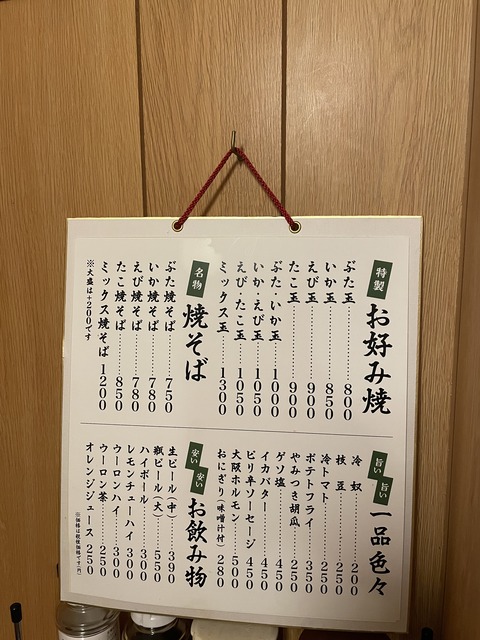 特製 お好み焼
ぶた玉 800
いか玉 850
えび玉 900
たこ玉 900
ぶた・いか玉 1000
いか・えび玉 1050
えび・たこ玉 1050
ミックス玉 1300
名物 焼そば
ぶた焼そば 750
いか焼そば 780
えび焼そば 780
たこ焼そば 850
ミックス焼そば 1200
※大盛は+200です
旨い 旨い 一品色々
冷奴 200
枝豆 250
冷トマト 250
ポテトフライ 350
やみつき胡瓜 250
ゲソ塩 450
イカバター 450
ピリ辛ソーセージ 450
大阪ホルモン 500
おにぎり(味噌汁付) 280
安い 安い お飲み物
生ビール(中) 390
瓶ビール(大) 550
ハイボール 300
レモンチューハイ 300
ウーロンハイ 300
ウーロン茶 250
オレンジジュース 250
※価格は税抜価格です(円)